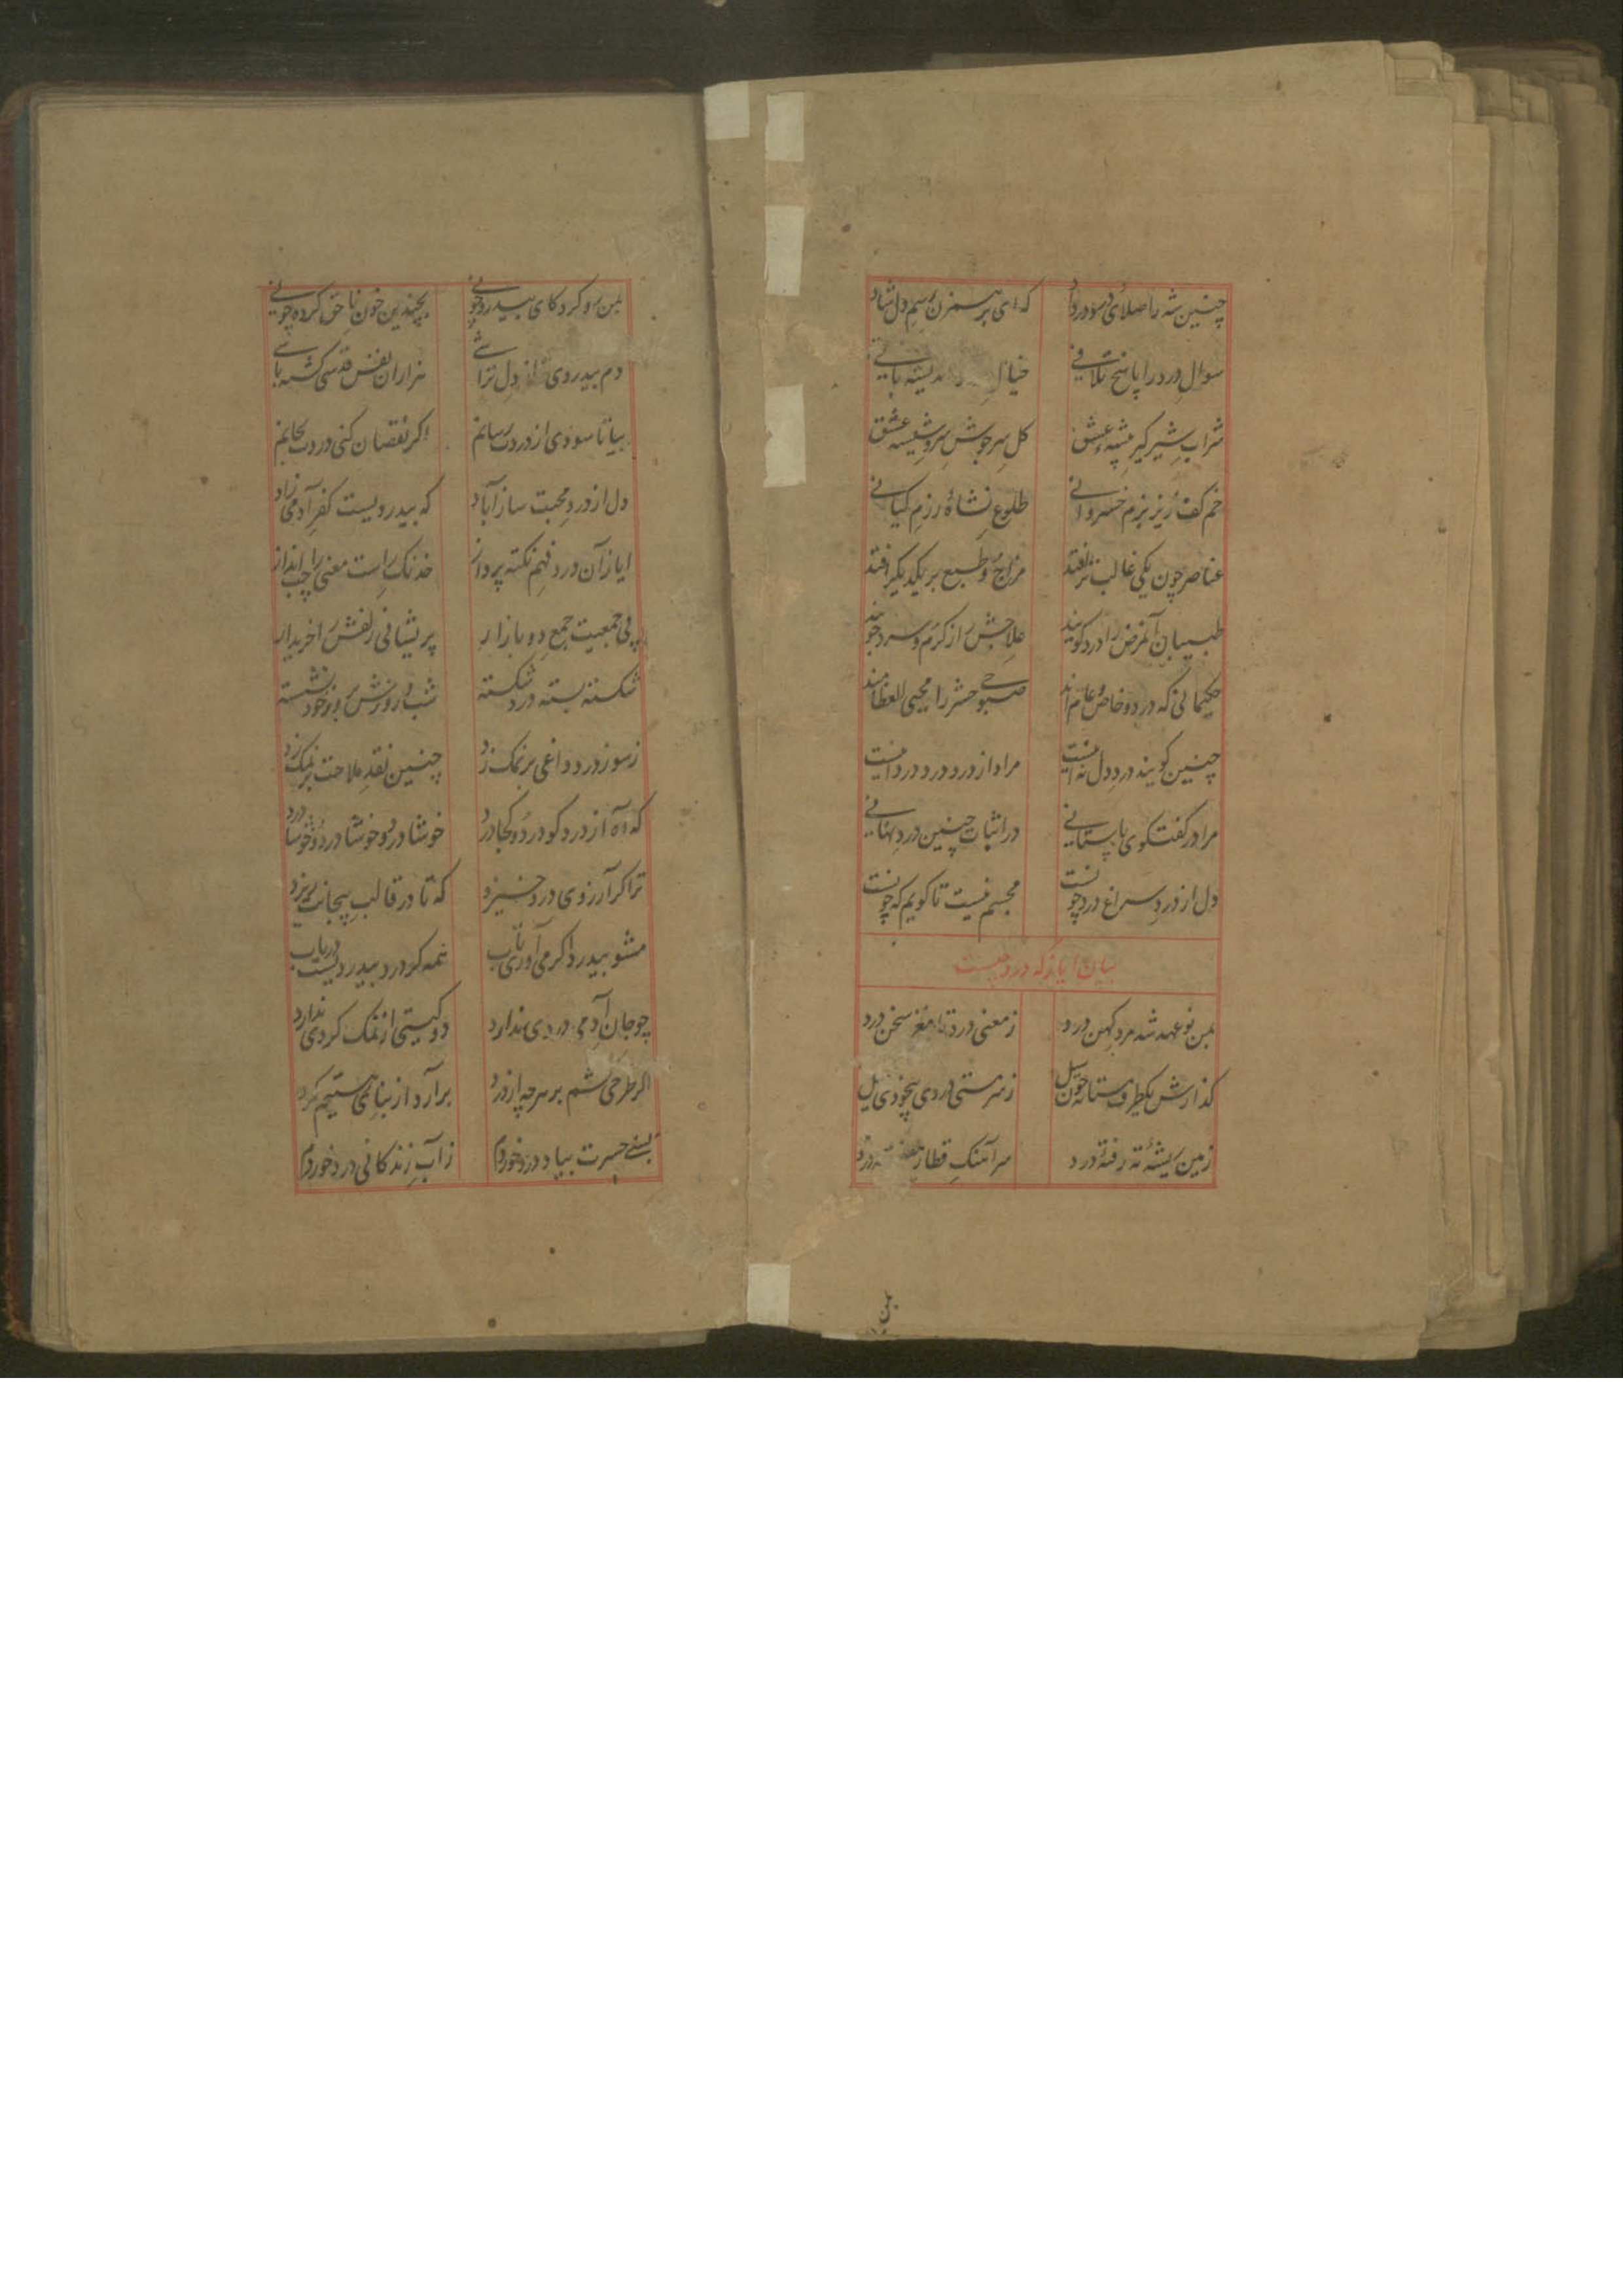 چنین شه را صلای سود در داد که ای بر همزن رسم دل شاد
سوال درد را پاسخ تلافی خیال اندیشه بافی
شراب شیر گیر بیشه عشق گل سرجوش سر و شیشه عشق
خم کف ریز بزم خسروانی طلوع نشاۀ رزم کیانی
عناصر چون یکی غالب تر افتد مزاج و طبع بر یکدیگر افتد
طبیبان آن مرض را درد گویند علاجش از گرم و سرد جویند
حکیمانی که درد خاص و عام اند صبوحی حشر را محیی العظامند
چنین گویند درد دل نه اینست مراد از درد درد درد اینست
مرا در گفتگوی باستانی در اثبات چنین درد نهانی
دل از درد سراغ درد چونست مجسم نیست تا گویم که چونست
بیان ایاز که درد چیست
بمن نو عهد شد مرد کهن درد ز معنی درد تا مغز سخن درد
گذارش یکطرف مستانه چون سیل ز سرمستی دردی بیخودی میل
زمین ریشۀ ته رفتۀ درد سرآهنگ قطار درد
بمن
بمن رو کرد کای بیدرد چونی بچندین خون ناحق کرده چونی
دم بیدردی از دل تراشی هزاران نفس قدسی کشته باشی
بیا تا سودی از دردت رسانم اگر نقصان کنی دردت بجانم
دل از درد محبت ساز آباد که بیدردیست کفر آدمی زاد
ایاز آن درد فهم نکته پرداز خدنگ راست معنی را چپ انداز
پی جمعیت جمع دو بازار پریشانی زلفش را خریدار
شکسته بسته درد شکسته شب و روزش بروز خود نشسته
ز سوز درد داغی بر نمک زد چنین نقد ملاحت بر نمک زد
که آه از درد کو درد و کجا درد خوشا درد و خوشا درد و خوشا درد
ترا گر آرزوی درد خیزد که تا در قالب بیجانت ریزد
مشو بیدرد اگر می آوری تاب همه گر درد بیدردیست دریاب
چو جان آدمی دردی ندارد دو گیتی از نمک گردی ندارد
اگر طرحی کشم بر سر چه از درد برآرد از بنای هستیم گرد
بسی حسرت بیاد درد خوردم ز آب زندگانی درد خوردم